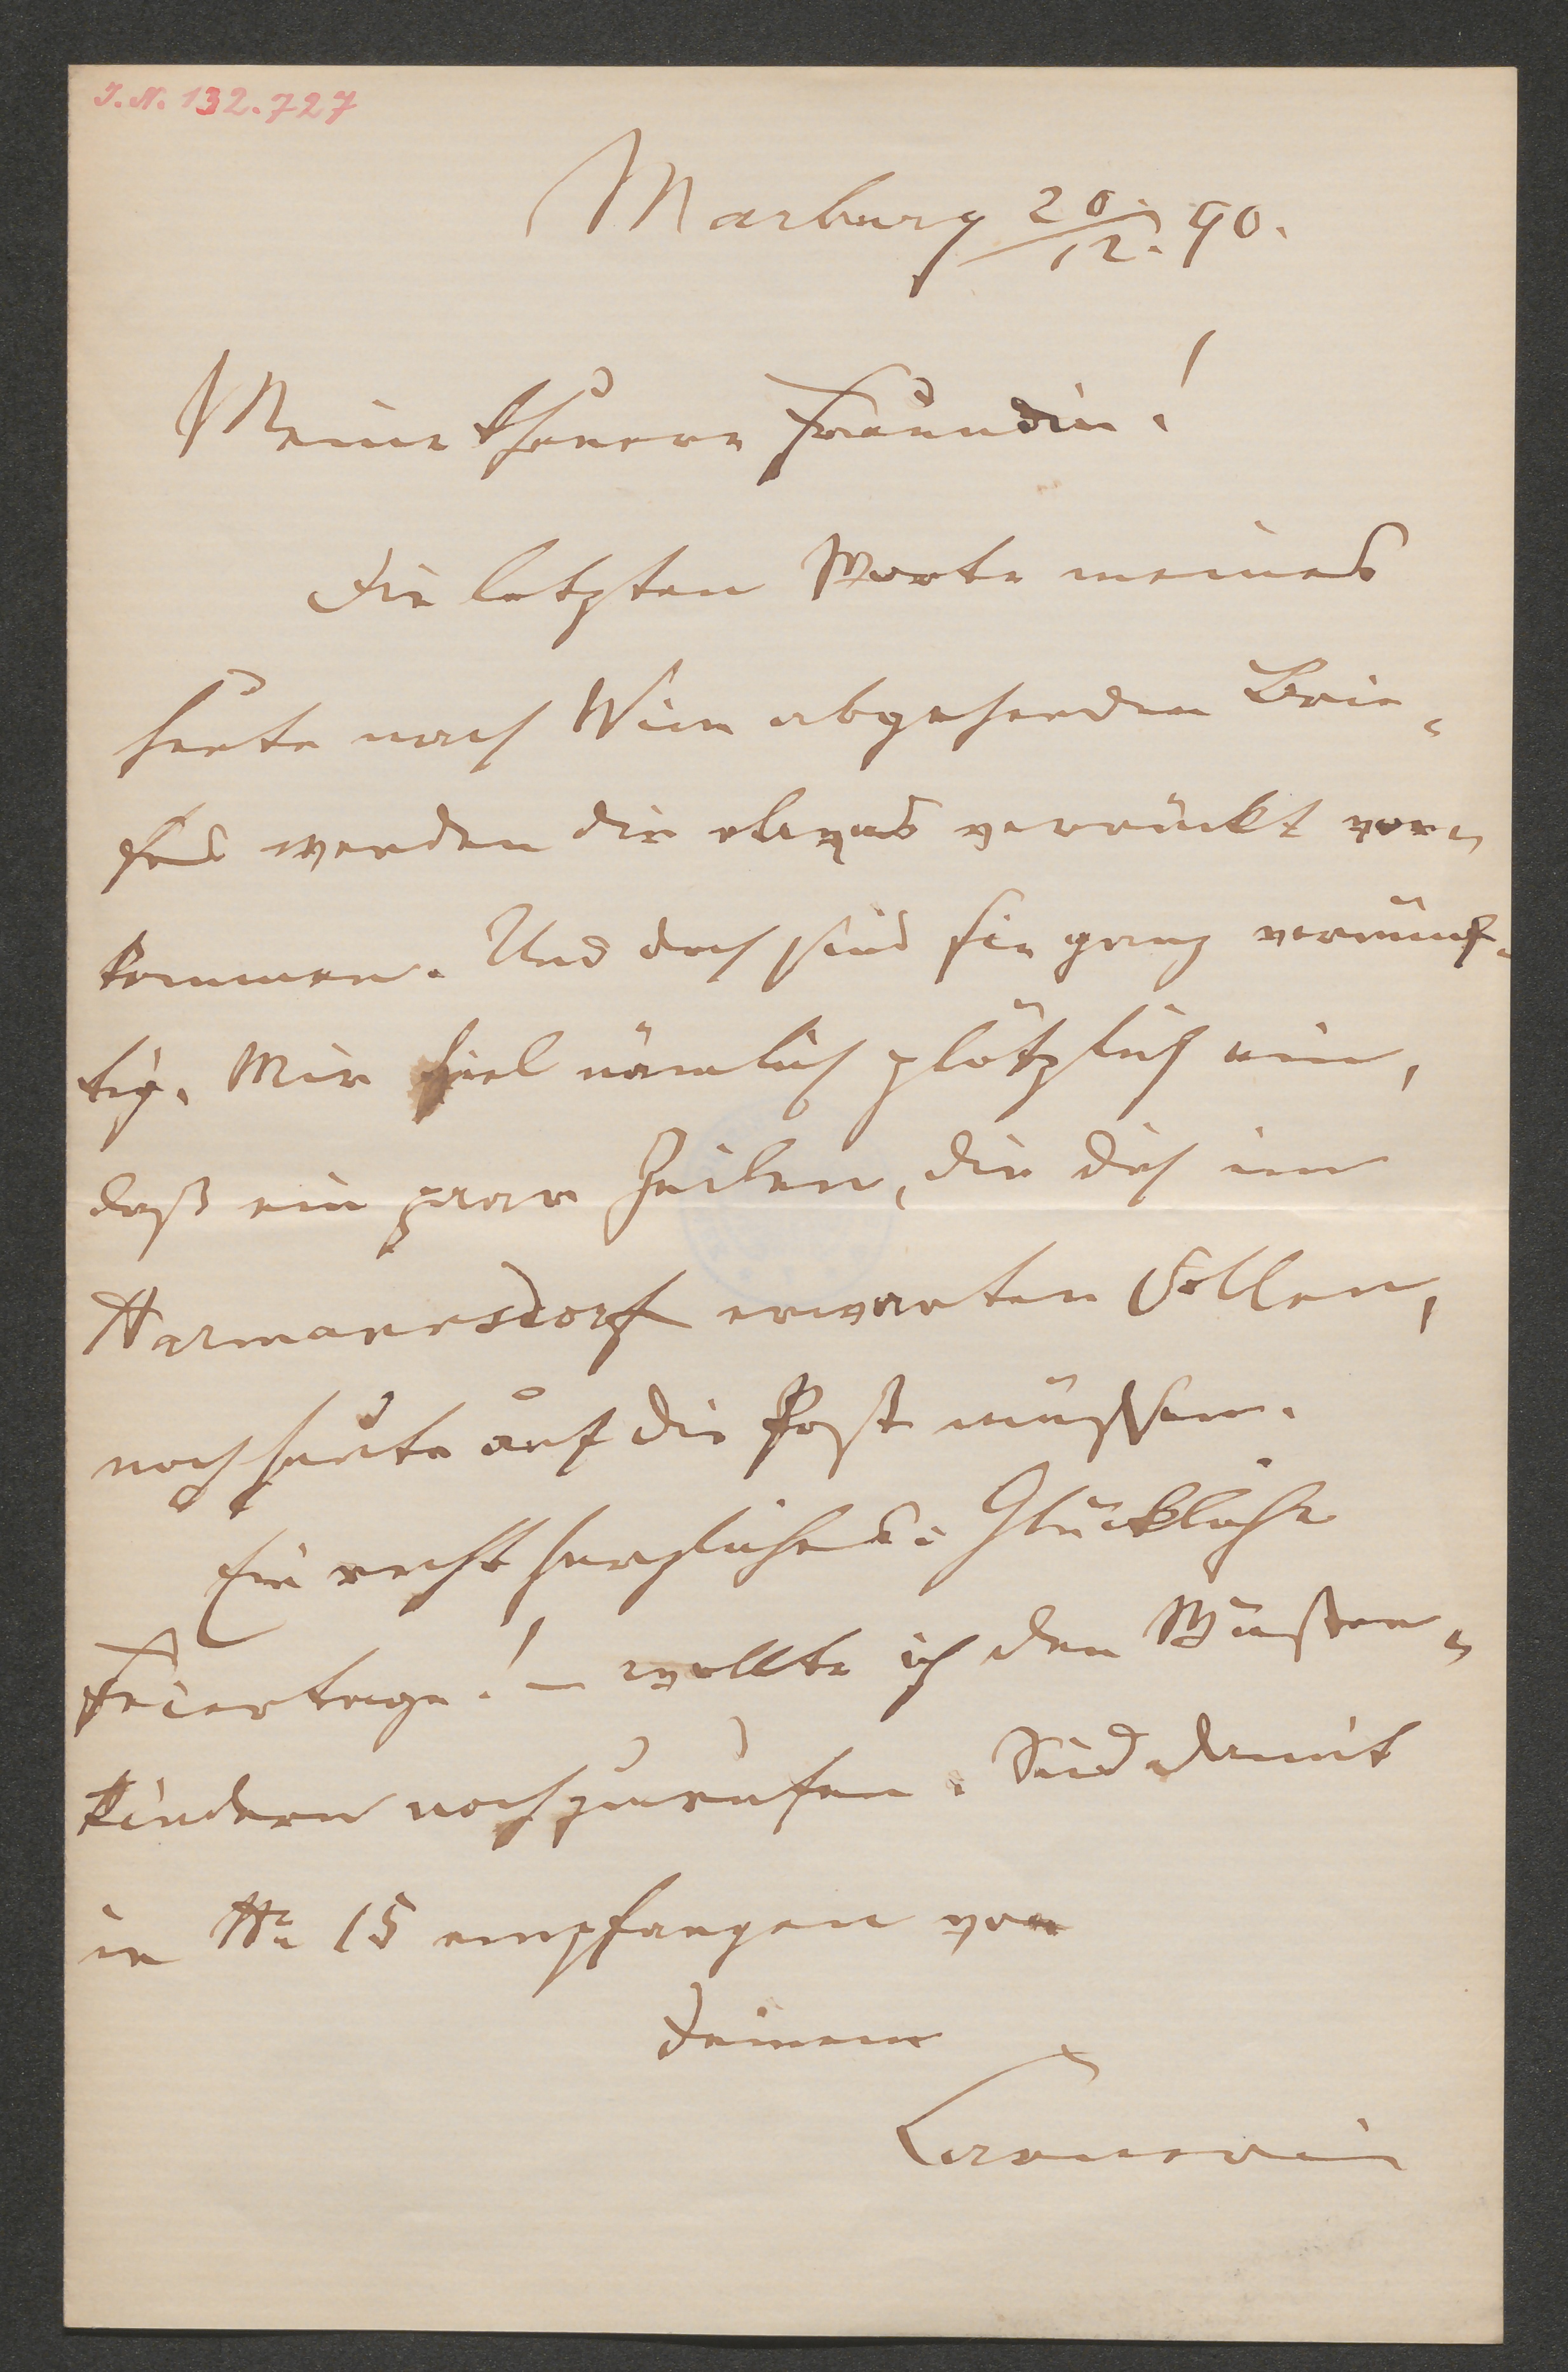 J. N. 132.727
Marburg 20/12. 90.
Meine theuere Freundin!
Die letzten Worte meines
heute nach Wien abgehenden Brie-
fes werden dir etwas verrückt vor-
kommen. Und doch sind sie ganz vernünf-
tig. Mir fiel nämlich plötzlich ein,
daß ein paar Zeilen, die dich in
Harmannsdorf erwarten sollen,
noch heute auf die Post müssen.
Ein recht herzliches: Glückliche
Feiertage! – wollte ich den
Kindern noch zurufen. Seid damit
in No 15 empfangen von
Deinem
Carneri